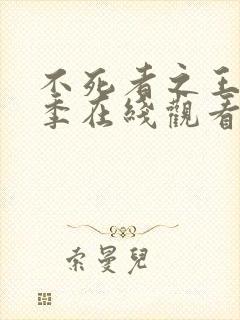 不死者之王
季在綫觀看
索曼兒